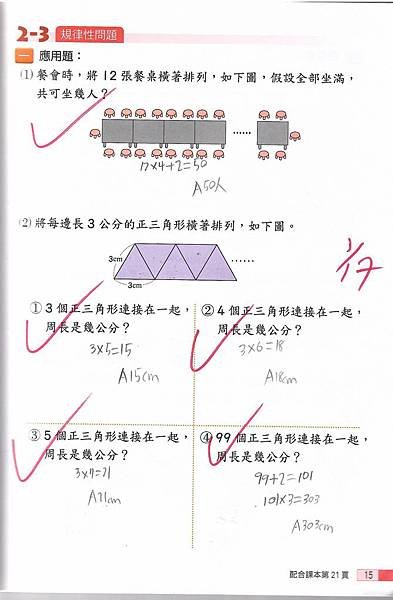 2-3 規律性問題
一 應用題：
(1) 餐會時，將 12 張餐桌橫著排列，如下圖，假設全部坐滿，
共可坐幾人？
……
12×4+2=50
A50人
(2) 將每邊長 3 公分的正三角形橫著排列，如下圖。
3cm
……
3cm
1/17
① 3 個正三角形連接在一起，
周長是幾公分？
3×5=15
A15cm
② 4 個正三角形連接在一起，
周長是幾公分？
3×6=18
A18cm
③ 5 個正三角形連接在一起，
周長是幾公分？
3×7=21
A21cm
④ 99 個正三角形連接在一起，
周長是幾公分？
99+2=101
101×3=303
A303cm
配合課本第 21 頁 15